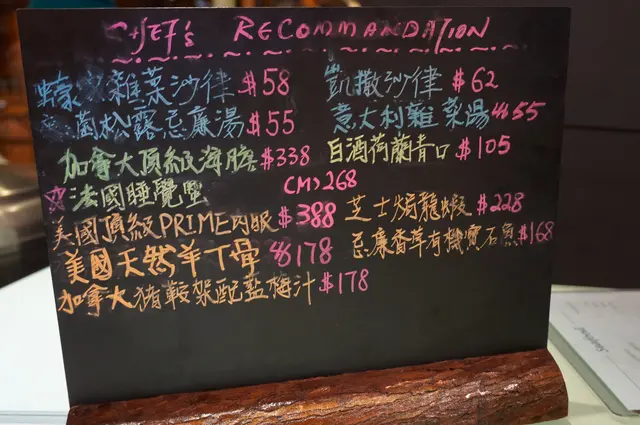 CHEF's RECOMMANDATION
雜菜沙律 $58
凱撒沙律 $62
菌松露忌廉湯 $55
意大利雜菜湯 $55
加拿大頂級海膽 $338
白酒荷蘭青口 $105
法國睡覺型 (M) 268
美國頂級PRIME肉眼 $388
芝士焗龍蝦 $228
美國天然羊丁骨 $178
忌廉香草有機寶石魚 $168
加拿大猪鞍架配藍梅汁 $178